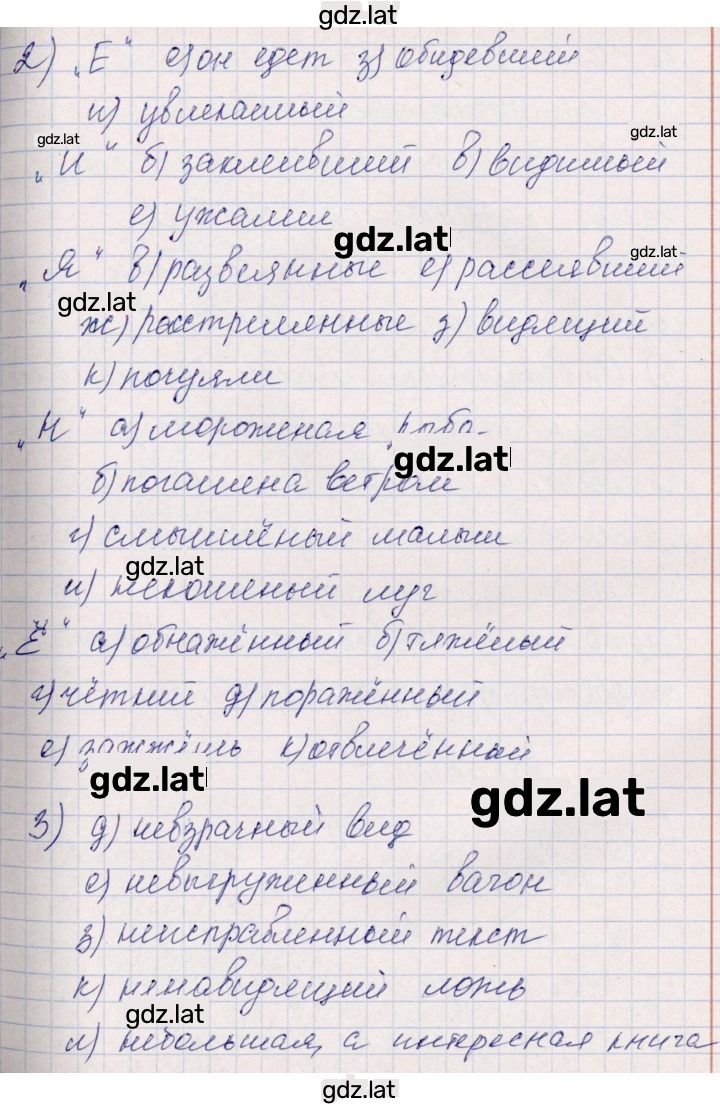 gdz.lat
2) „Е“ е) он едет з) обидевший
и) увлекаемый
gdz.lat gdz.lat
„И“ б) заклеивший в) видимый
е) ужалил
gdz.lat gdz.lat
„Я“ в) развеянные е) рассеявший
gdz.lat
ж) расстрелянные з) видящий
к) почуяли
„Н“ а) мороженая рыба
gdz.lat
б) погашена ветром
г) смышлёный малыш
gdz.lat
и) некошеный луг
„Ё“ а) обнажённый б) тяжёлый
г) чёткий д) поражённый
е) зажжёшь к) отвлечённый
gdz.lat gdz.lat
3) д) невзрачный вид
е) невыгруженный вагон
з) неисправленный текст
к) ненавидящий ложь
gdz.lat
л) небольшая, а интересная книга
gdz.lat